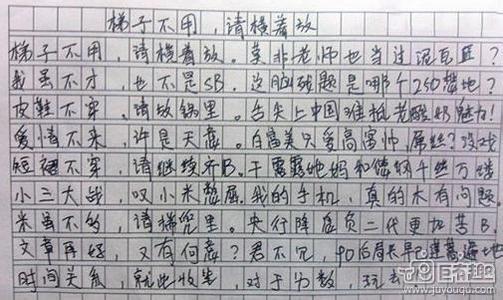 梯子不用，请横着放
梯子不用，请横着放。莫非老师也当过泥瓦匠？
我虽不才，也不是SB。这脑残题是哪个250想地？
皮鞋不穿，请放锅里。舌尖上中国难抵老酸奶魅力！
爱情不来，许是天意。白富美只爱高富帅，屌丝？没戏
短裙不穿，请继续齐B。干露露她妈和
小三大战，叹小米憋屈。我的手机，真的木有问题。
米虽不多，请梯兜里。央行降息负二代更加苦B。
文章再好，又有何意？君不见，90后周天早已遍地
时间关系，就此收笔。对于分数，
www.juyouqu.com